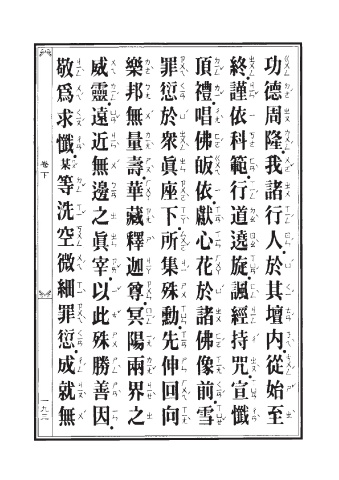 功德周隆。我諸行人。於其壇內。從始至
終。謹依科範。行道遶旋。諷經持咒。宣懺
頂禮。唱佛皈依。獻心花於諸佛像前。雪
罪愆於眾眞座下。所集殊勳。先伸回向
樂邦無量壽。華藏釋迦尊。冥陽兩界之
威靈。遠近無邊之眞宰。以此殊勝善因。
敬爲求懺某等洗空微細罪愆。成就無
卷下
一九三